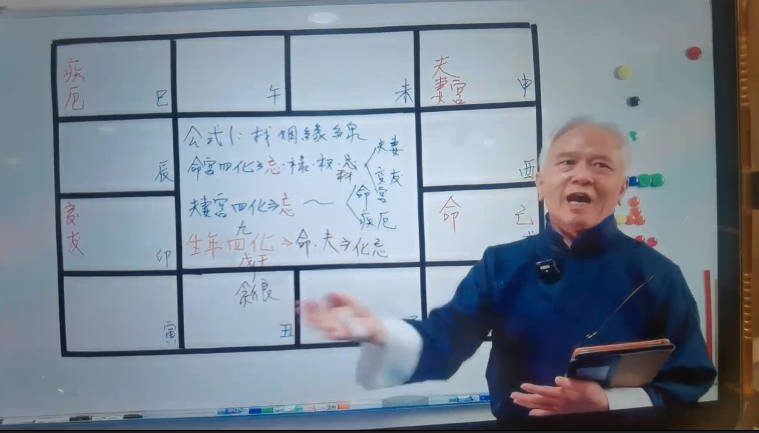 疾厄 巳
午
未
夫妻宮 申
辰
公式1: 找姻緣線
命宮四化⇒忌.祿.权.忌 科 夫妻 交友
夫妻宮四化⇒忌 ~ 命宮 疾厄
生年四化⇒命.夫⇒化忌
九
戊干
酉
交友 卯
命
寅
丑